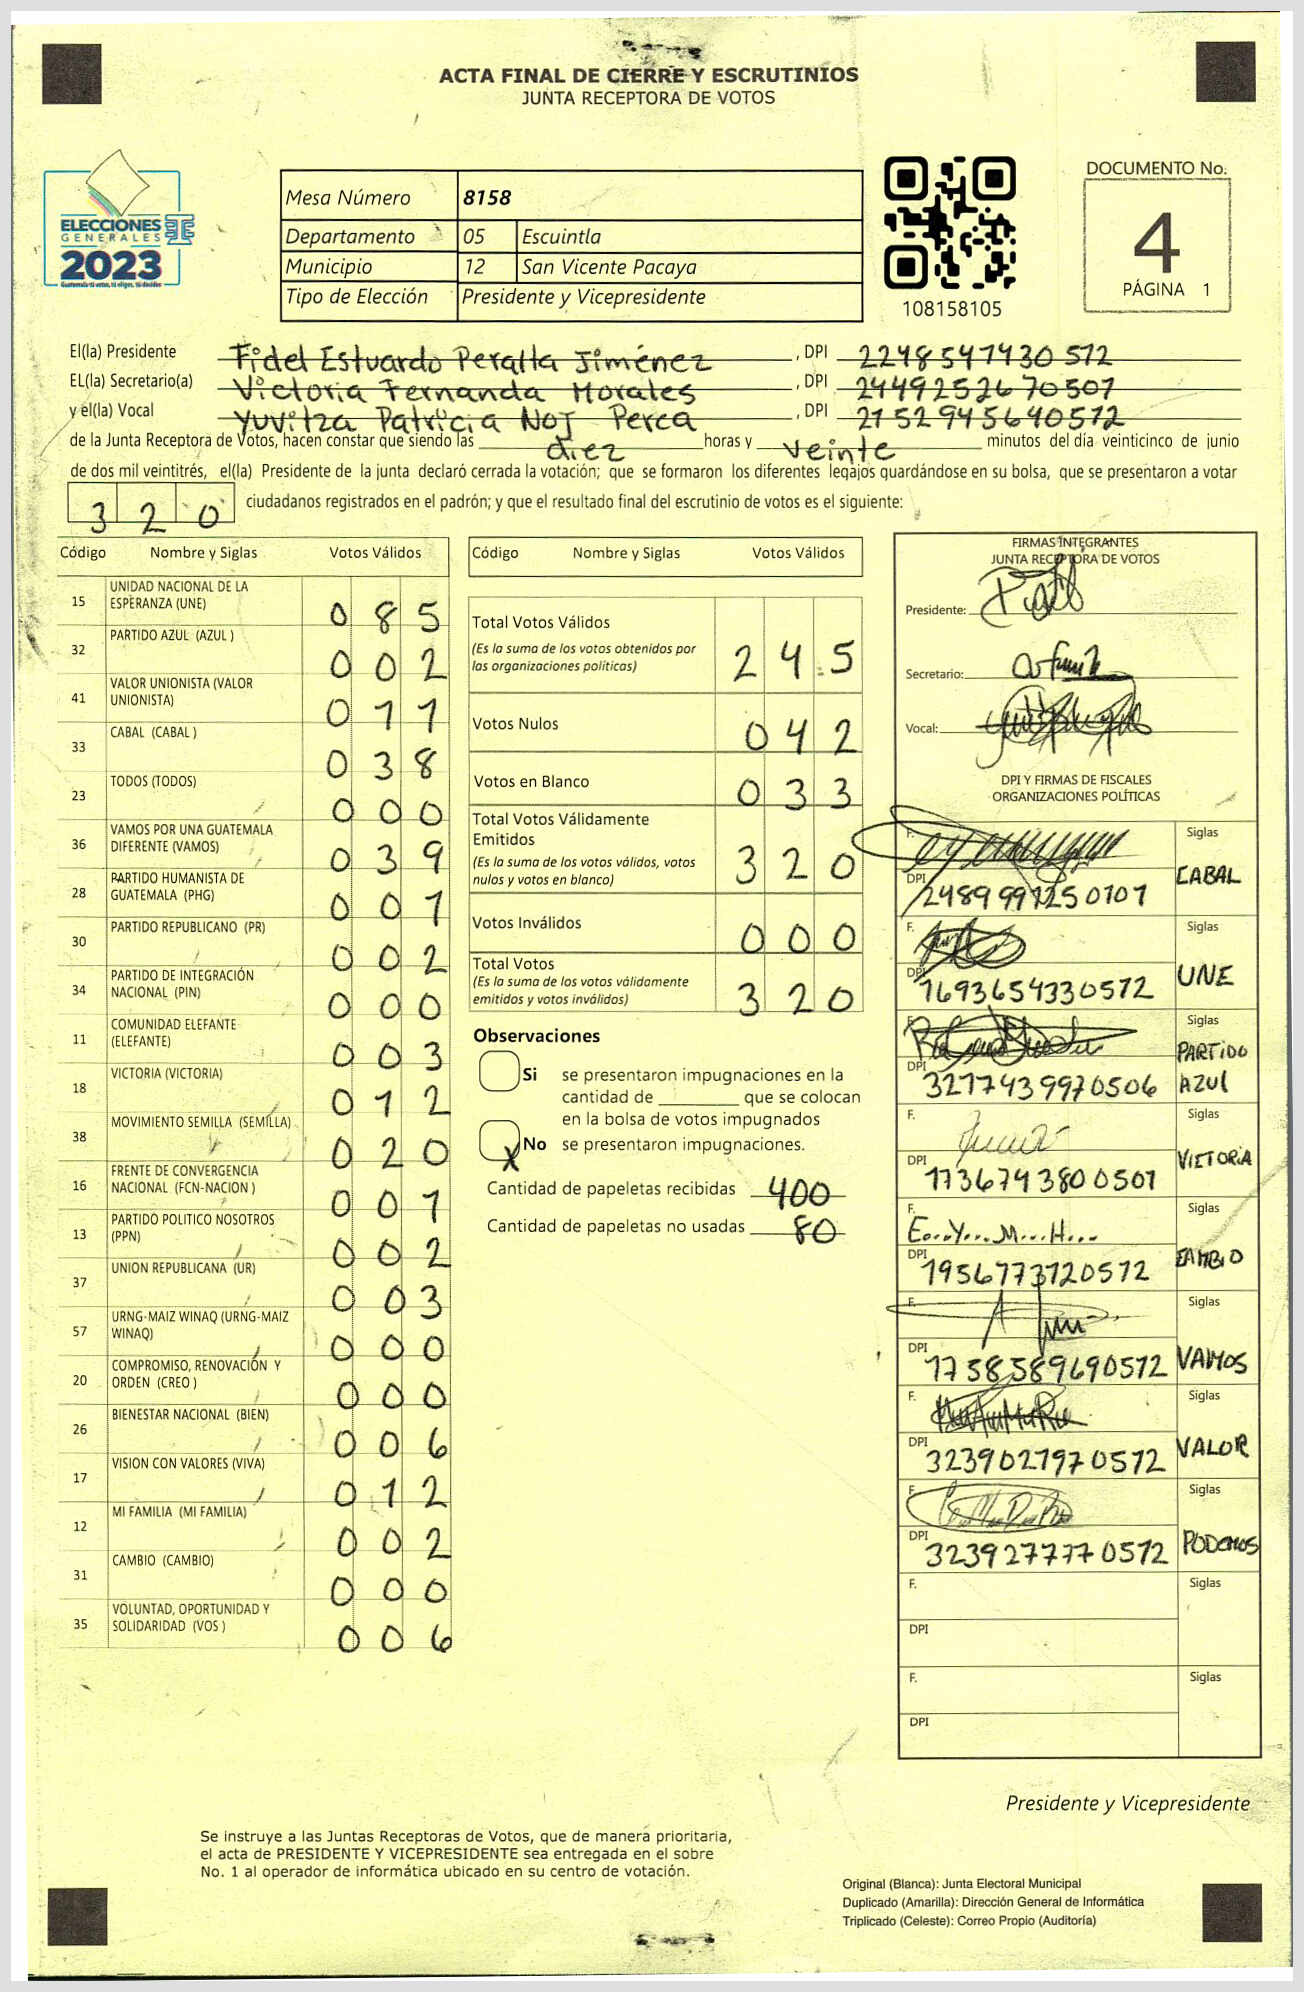 ACTA FINAL DE CIERRE Y ESCRUTINIOS
JUNTA RECEPTORA DE VOTOS
ELECCIONES
GENERALES
2023
Guatemala tú votas, tú eliges, tú decides
Mesa Número 8158
Departamento 05 Escuintla
Municipio 12 San Vicente Pacaya
Tipo de Elección Presidente y Vicepresidente
108158105
DOCUMENTO No.
4
PÁGINA 1
El(la) Presidente Fidel Estuardo Peralta Jiménez, DPI 2248547430572
EL(la) Secretario(a) Victoria Fernanda Morales, DPI 2449252670507
y el(la) Vocal Yuvitza Patricia Noj Perca, DPI 2752945640572
de la Junta Receptora de Votos, hacen constar que siendo las diez horas y veinte minutos del día veinticinco de junio
de dos mil veintitrés, el(la) Presidente de la junta declaró cerrada la votación; que se formaron los diferentes legajos guardándose en su bolsa, que se presentaron a votar
320 ciudadanos registrados en el padrón; y que el resultado final del escrutinio de votos es el siguiente:
Código Nombre y Siglas Votos Válidos
15 UNIDAD NACIONAL DE LA ESPERANZA (UNE) 085
32 PARTIDO AZUL (AZUL ) 002
41 VALOR UNIONISTA (VALOR UNIONISTA) 011
33 CABAL (CABAL ) 038
23 TODOS (TODOS) 000
36 VAMOS POR UNA GUATEMALA DIFERENTE (VAMOS) 039
28 PARTIDO HUMANISTA DE GUATEMALA (PHG) 001
30 PARTIDO REPUBLICANO (PR) 002
34 PARTIDO DE INTEGRACIÓN NACIONAL (PIN) 000
11 COMUNIDAD ELEFANTE (ELEFANTE) 003
18 VICTORIA (VICTORIA) 012
38 MOVIMIENTO SEMILLA (SEMILLA) 020
16 FRENTE DE CONVERGENCIA NACIONAL (FCN-NACION ) 001
13 PARTIDO POLITICO NOSOTROS (PPN) 002
37 UNION REPUBLICANA (UR) 003
57 URNG-MAIZ WINAQ (URNG-MAIZ WINAQ) 000
20 COMPROMISO, RENOVACIÓN Y ORDEN (CREO ) 000
26 BIENESTAR NACIONAL (BIEN) 006
17 VISION CON VALORES (VIVA) 012
12 MI FAMILIA (MI FAMILIA) 002
31 CAMBIO (CAMBIO) 000
35 VOLUNTAD, OPORTUNIDAD Y SOLIDARIDAD (VOS ) 006
Código Nombre y Siglas Votos Válidos
Total Votos Válidos 245
(Es la suma de los votos obtenidos por
las organizaciones políticas)
Votos Nulos 042
Votos en Blanco 033
Total Votos Válidamente
Emitidos 320
(Es la suma de los votos válidos, votos
nulos y votos en blanco)
Votos Inválidos 000
Total Votos 320
(Es la suma de los votos válidamente
emitidos y votos inválidos)
Observaciones
Si se presentaron impugnaciones en la
cantidad de ________ que se colocan
en la bolsa de votos impugnados
X No se presentaron impugnaciones.
Cantidad de papeletas recibidas 400
Cantidad de papeletas no usadas 80
FIRMAS INTEGRANTES
JUNTA RECEPTORA DE VOTOS
Presidente:
Secretario:
Vocal:
DPI Y FIRMAS DE FISCALES
ORGANIZACIONES POLÍTICAS
F. Siglas
DPI 2489997250101 CABAL
F. Siglas
DPI 1693654330572 UNE
F. Siglas
DPI 3217439970506 PARTIDO AZUL
F. Siglas
DPI 1736743800501 VICTORIA
F. E...Y... M... H... Siglas
DPI 1956773120572 CAMBIO
F. Siglas
DPI 1758589690572 VAMOS
F. Siglas
DPI 3239027970572 VALOR
F. Siglas
DPI 3239277770572 PODEMOS
F. Siglas
DPI
F. Siglas
DPI
Presidente y Vicepresidente
Se instruye a las Juntas Receptoras de Votos, que de manera prioritaria,
el acta de PRESIDENTE Y VICEPRESIDENTE sea entregada en el sobre
No. 1 al operador de informática ubicado en su centro de votación.
Original (Blanca): Junta Electoral Municipal
Duplicado (Amarilla): Dirección General de Informática
Triplicado (Celeste): Correo Propio (Auditoría)